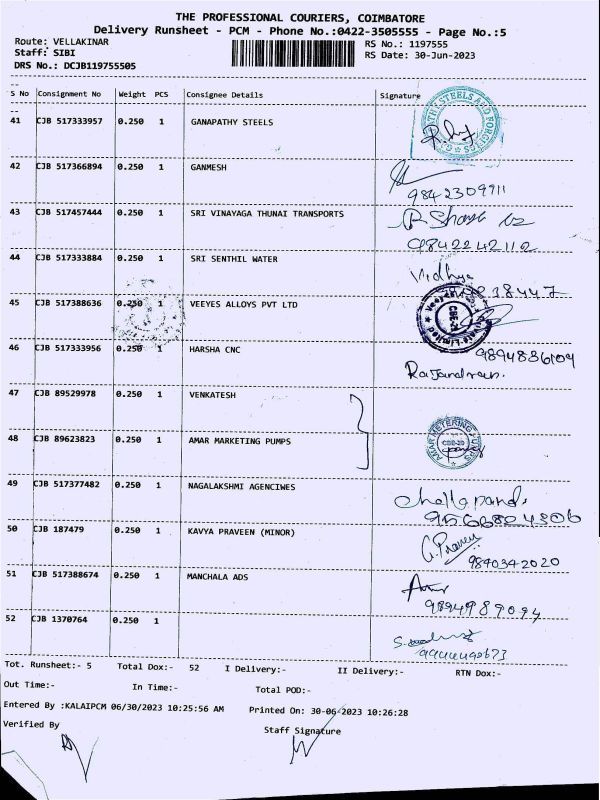 THE PROFESSIONAL COURIERS, COIMBATORE
Delivery Runsheet - PCM - Phone No.:0422-3505555 - Page No.:5
Route: VELLAKINAR RS No.: 1197555
Staff: SIBI RS Date: 30-Jun-2023
DRS No.: DCJB119755505
S No Consignment No Weight PCS Consignee Details Signature
41 CJB 517333957 0.250 1 GANAPATHY STEELS
42 CJB 517366894 0.250 1 GANMESH
9842309911
43 CJB 517457444 0.250 1 SRI VINAYAGA THUNAI TRANSPORTS
9842242112
44 CJB 517333884 0.250 1 SRI SENTHIL WATER
Vidhya
38447
45 CJB 517388636 0.250 1 VEEYES ALLOYS PVT LTD
46 CJB 517333956 0.250 1 HARSHA CNC
9894836109
Rajandran.
47 CJB 89529978 0.250 1 VENKATESH
48 CJB 89623823 0.250 1 AMAR MARKETING PUMPS
49 CJB 517377482 0.250 1 NAGALAKSHMI AGENCIWES
50 CJB 187479 0.250 1 KAVYA PRAVEEN (MINOR)
G. Praveen
9840342020
51 CJB 517388674 0.250 1 MANCHALA ADS
9894989094
52 CJB 1370764 0.250 1
Tot. Runsheet:- 5 Total Dox:- 52 I Delivery:- II Delivery:- RTN Dox:-
Out Time:- In Time:- Total POD:-
Entered By :KALAIPCM 06/30/2023 10:25:56 AM Printed On: 30-06-2023 10:26:28
Verified By Staff Signature